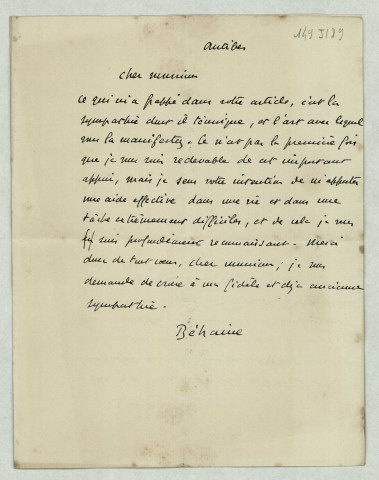 149 J 189
Antibes
cher monsieur
Ce qui m'a frappé dans votre article, c'est la
sympathie dont il témoigne, et l'art avec lequel
vous la manifestez. Ce n'est pas la première fois
que je vous suis redevable de cet important
appui, mais je sens votre intention de m'apporter
une aide effective dans une vie et dans une
tâche extrêmement difficiles, et de cela je vous
suis profondément reconnaissant. Merci
donc de tout cœur, cher monsieur; je vous
demande de croire à ma fidèle et déjà ancienne
sympathie.
Béhaine